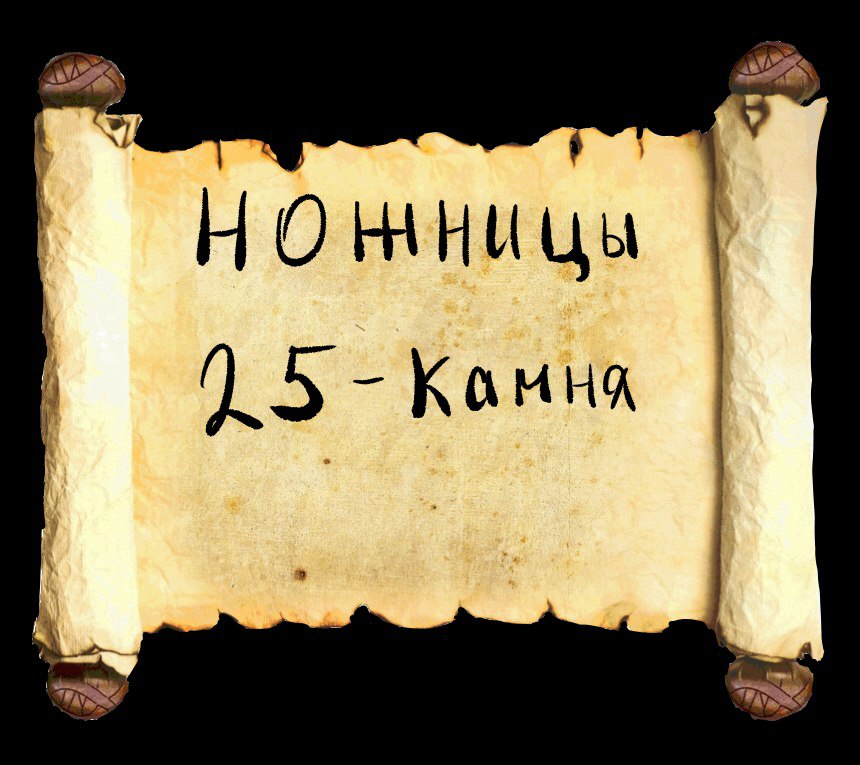 Ножницы
25-камня